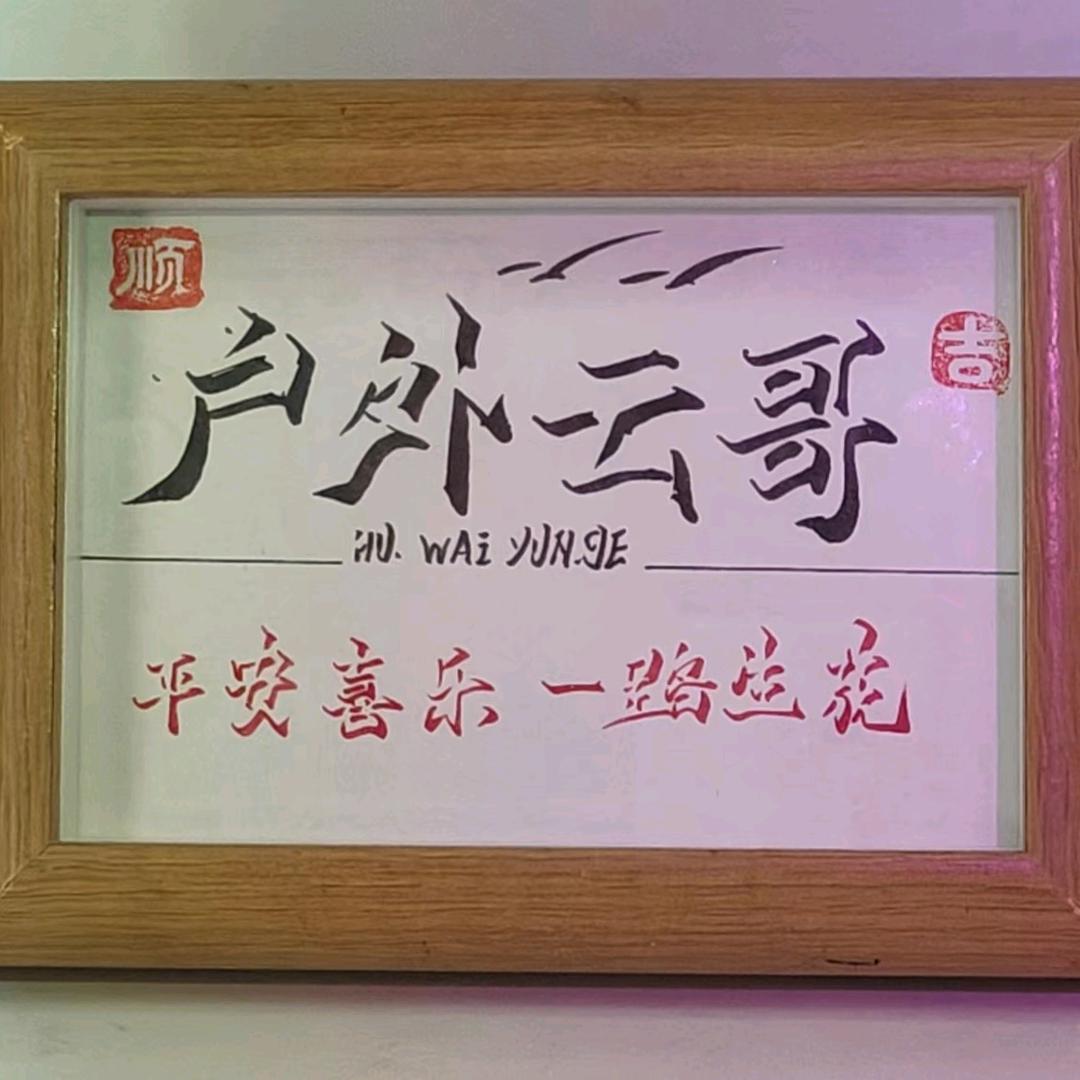 顺
户外云哥
吉
HU. WAi YUN.GE
平安喜乐 一路生花